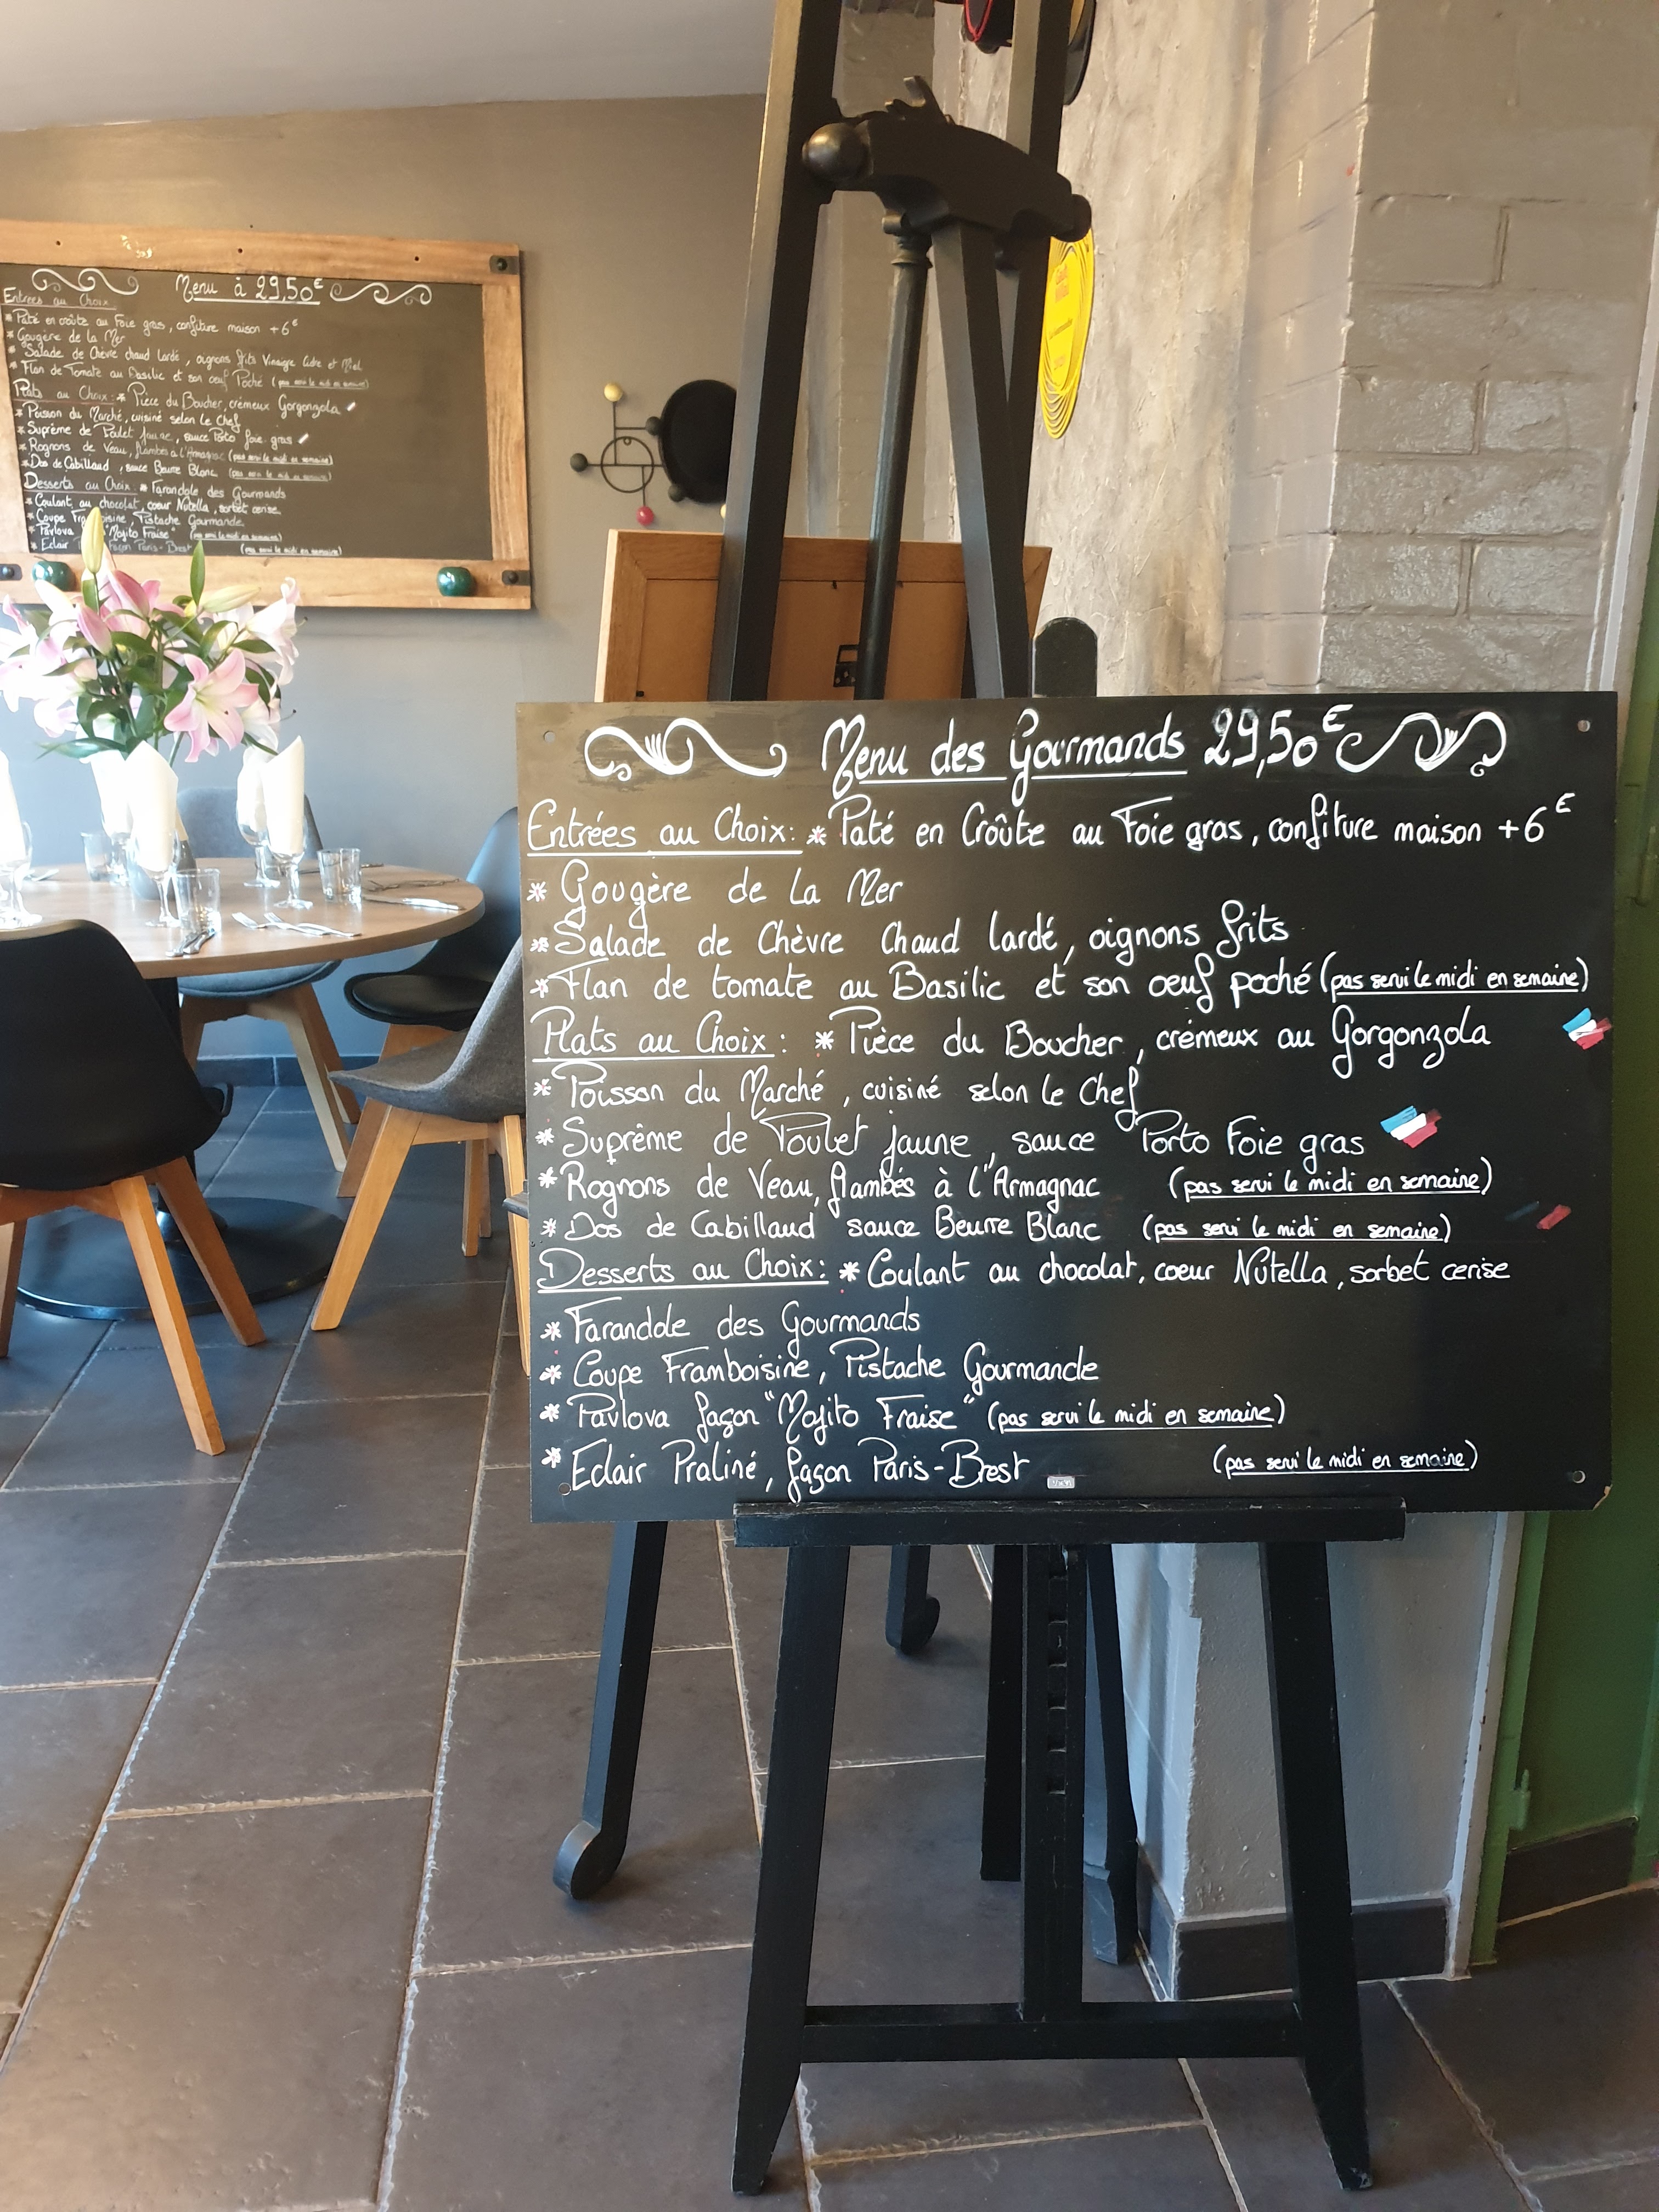 Menu à 29,50€
Entrées au Choix:
* Paté en croûte au Foie gras, confiture maison +6€
* Gougère de la Mer
* Salade de Chèvre chaud lardé, oignons frits Vinaigre Cidre et Miel
* Flan de Tomate au Basilic et son oeuf Poché (pas servi le midi en semaine)
Plats au Choix: * Pièce du Boucher, crémeux Gorgonzola
* Poisson du Marché, cuisiné selon le Chef
* Suprême de Poulet Jaune, sauce Porto foie gras
* Rognons de Veau, flambés à l'Armagnac (pas servi le midi en semaine)
* Dos de Cabillaud, sauce Beurre Blanc (pas servi le midi en semaine)
Desserts au Choix: * Farandole des Gourmands
* Coulant au chocolat, coeur Nutella, sorbet cerise
* Coupe Pistache Gourmande
* Pavlova "Mojito Fraise" (pas servi le midi en semaine)
* Eclair façon Paris-Brest (pas servi le midi en semaine)
Menu des Gourmands 29,50€
Entrées au Choix: * Paté en Croûte au Foie gras, confiture maison +6€
* Gougère de La Mer
* Salade de Chèvre chaud lardé, oignons frits
* Flan de tomate au Basilic et son oeuf poché (pas servi le midi en semaine)
Plats au Choix: * Pièce du Boucher, crémeux au Gorgonzola
* Poisson du Marché, cuisiné selon le Chef
* Suprême de Poulet jaune, sauce Porto Foie gras
* Rognons de Veau, flambés à l'Armagnac (pas servi le midi en semaine)
* Dos de Cabillaud sauce Beurre Blanc (pas servi le midi en semaine)
Desserts au Choix: * Coulant au chocolat, coeur Nutella, sorbet cerise
* Farandole des Gourmands
* Coupe Framboisine, Pistache Gourmande
* Pavlova façon "Mojito Fraise" (pas servi le midi en semaine)
* Eclair Praliné, façon Paris-Brest (pas servi le midi en semaine)